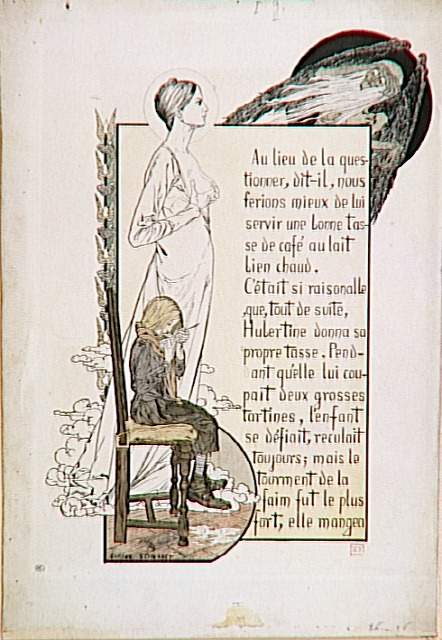 Au lieu de la ques-
tionner, dit-il, nous
ferions mieux de lui
servir une bonne tas-
se de café au lait
bien chaud.
C'était si raisonalle
que, tout de suite,
Hubertine donna sa
propre tasse. Pend-
ant qu'elle lui cou-
pait deux grosses
tartines, l'enfant
se défiait, reculait
toujours; mais le
tourment de la
faim fut le plus
fort, elle mangea